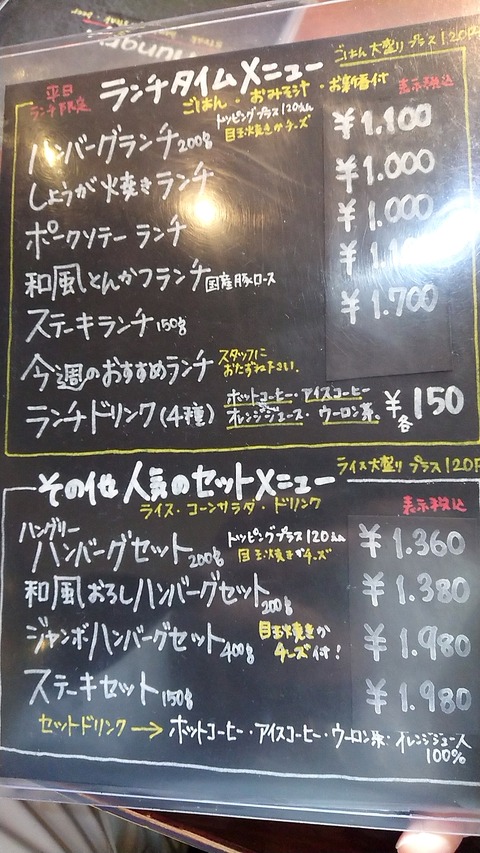 ごはん 大盛り プラス120円
平日
ランチ限定
ランチタイムメニュー
ごはん・おみそ汁・お新香付
表示税込
トッピングプラス120えん
目玉焼きかチーズ
ハンバーグランチ 200g ¥1.100
しょうが焼きランチ ¥1.000
ポークソテーランチ ¥1.000
和風とんかつランチ 国産豚ロース
ステーキランチ 150g ¥1.700
今週のおすすめランチ スタッフに
おたずね下さい.
ランチドリンク(4種) ホットコーヒー・アイスコーヒー
オレンジジュース・ウーロン茶. ¥各150
ライス大盛り プラス120円
その他 人気のセットメニュー
ライス・コーンサラダ・ドリンク
表示税込
ハングリー
ハンバーグセット 200g トッピングプラス120えん ¥1.360
目玉焼きかチーズ
和風おろしハンバーグセット 200g ¥1.380
ジャンボハンバーグセット 400g 目玉焼きか
チーズ付! ¥1.980
ステーキセット 150g ¥1.980
セットドリンク → ホットコーヒー・アイスコーヒー・ウーロン茶・オレンジジュース
100%